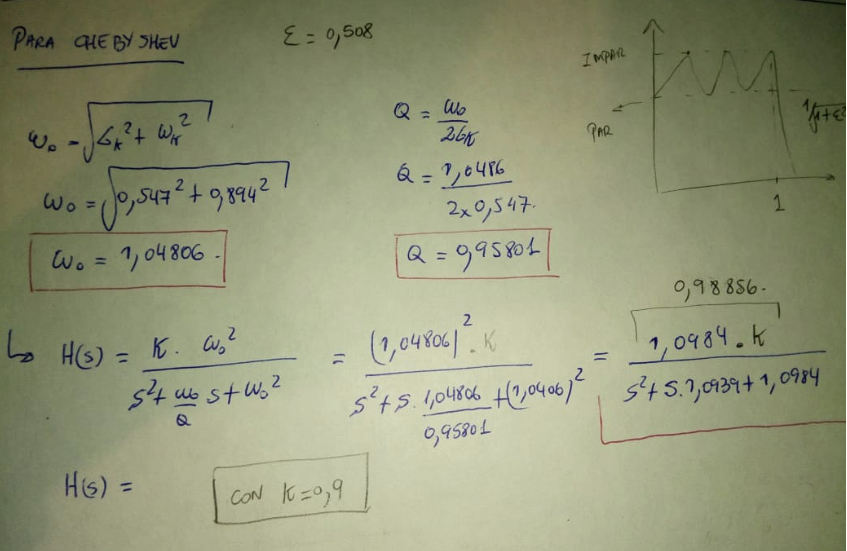 PARA CHEBYSHEV
ε = 0,508
ω₀ = √(σₖ² + ωₖ²)
ω₀ = √(0,547² + 0,894²)
ω₀ = 1,04806.
Q = ω₀ / 2σₖ
Q = 1,0486 / 2x0,547.
Q = 0,95801
IMPAR
PAR
1/√1+ε²
1
0,98856.
↳ H(s) = K. ω₀² / (s² + ω₀/Q s + ω₀²) = (1,04806)² . K / (s² + s. 1,04806/0,95801 + (1,0406)²) = 1,0984 . K / (s² + s.1,0939 + 1,0984)
H(s) =
CON K=0,9